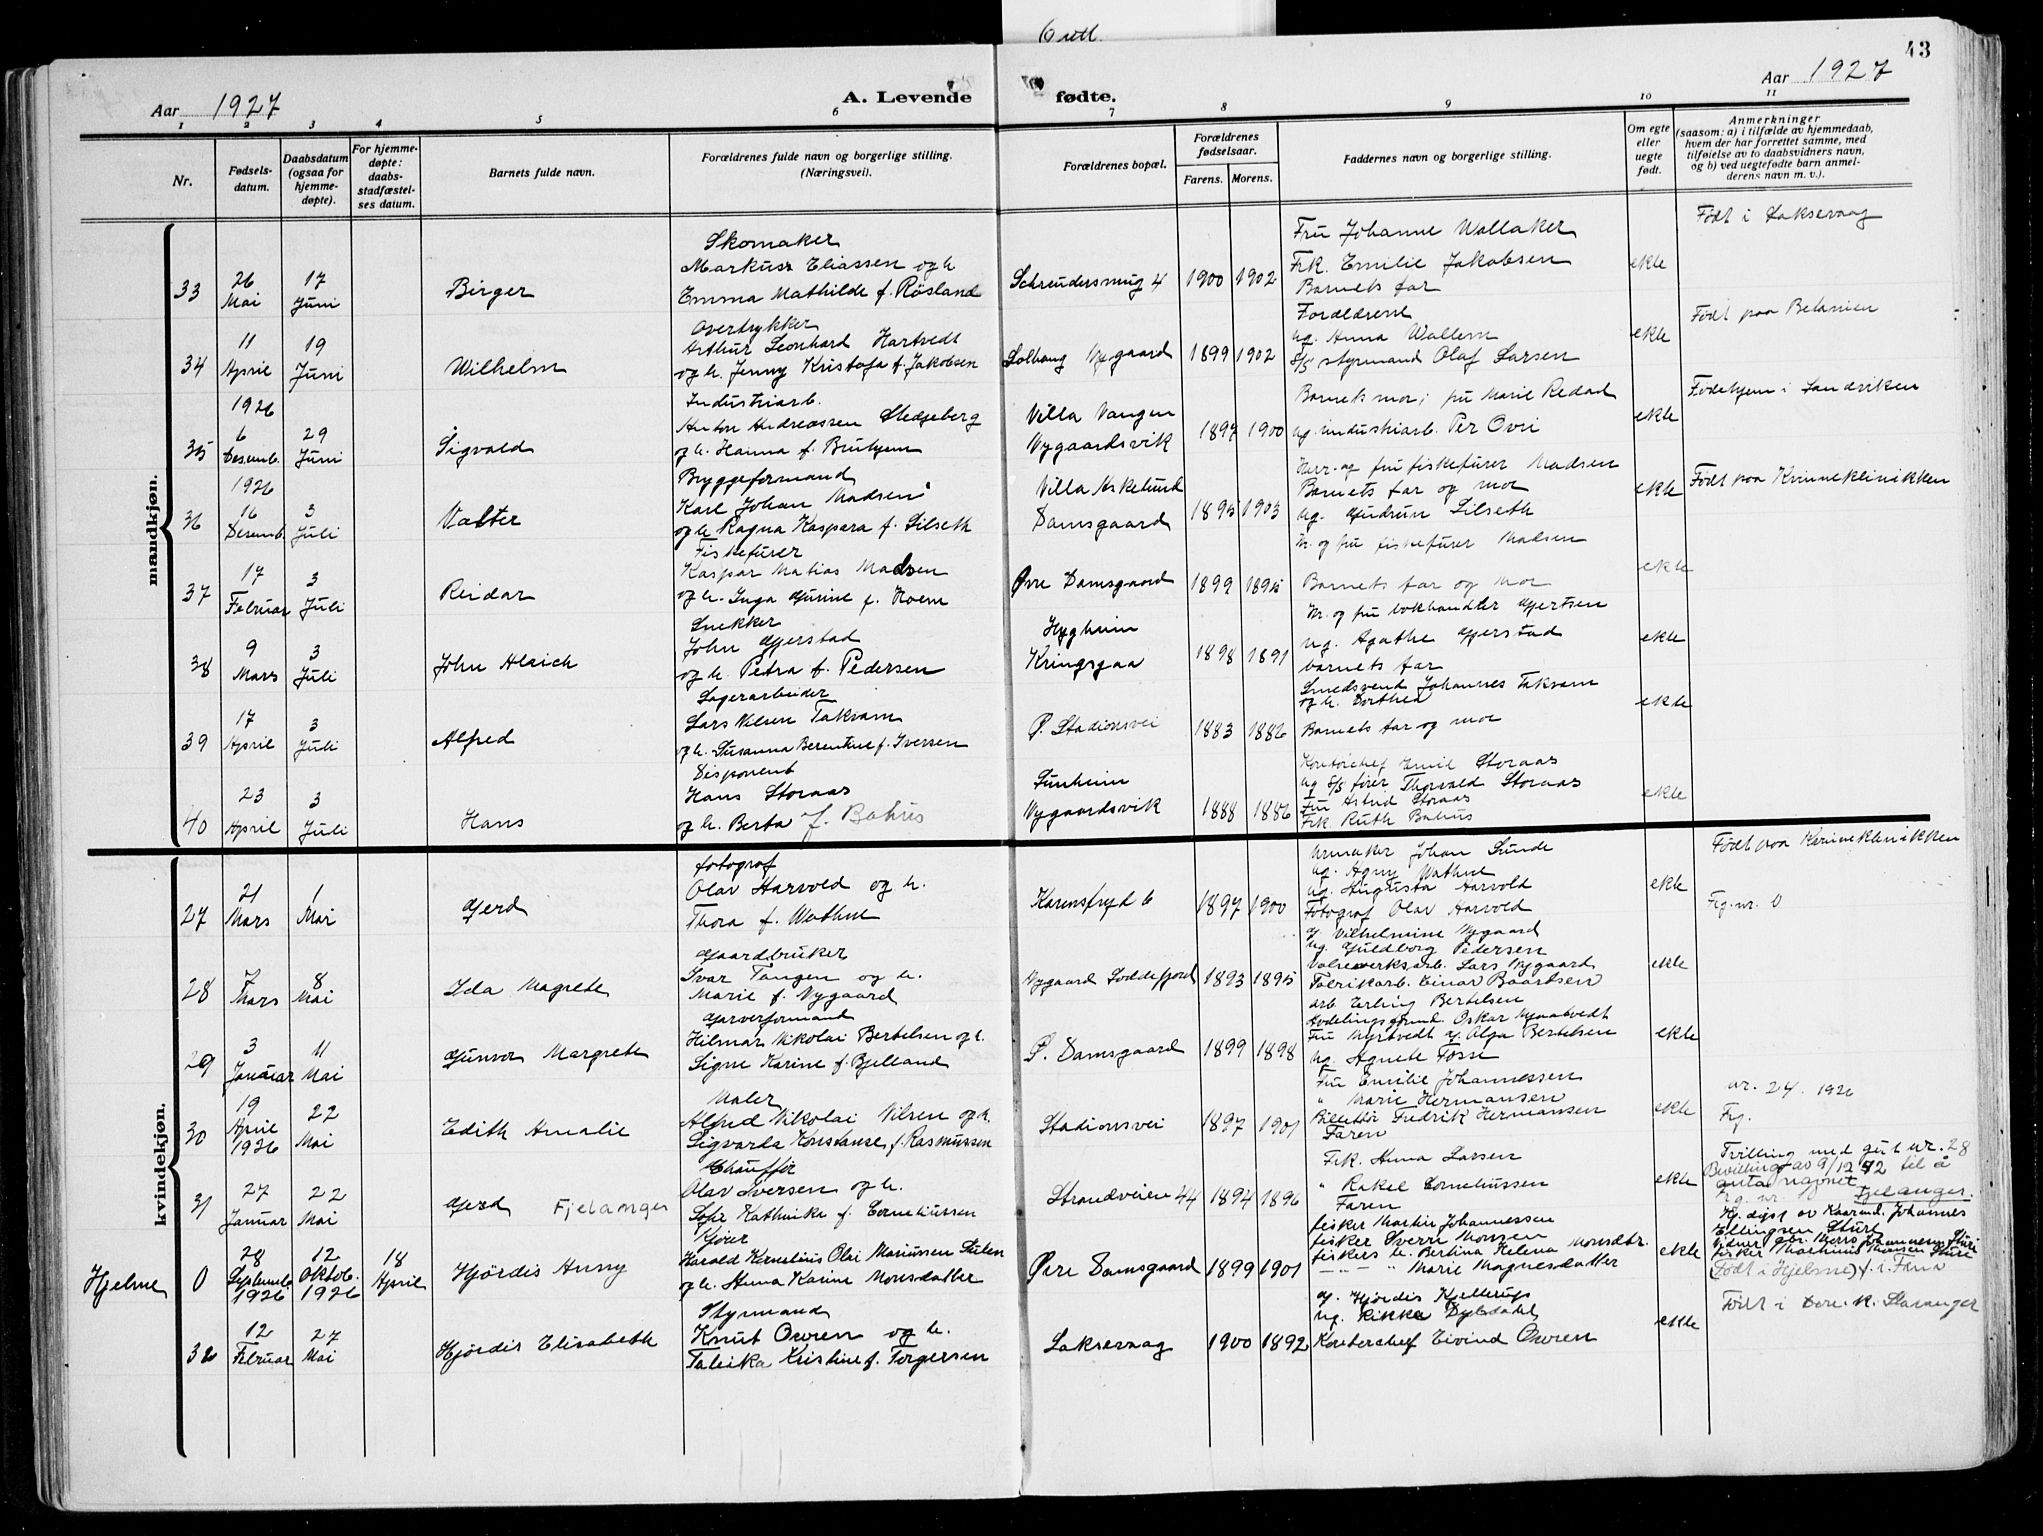 6 ull.
43
Aar 1927
A. Levende fødte.
Aar 1927
1 2 3 4 5 6 7 8 9 10 11
Nr.
Fødsels-
datum.
Daabsdatum
(ogsaa for
hjemme-
døpte).
For hjemme-
døpte:
daabs-
stadfæstel-
ses datum.
Barnets fulde navn.
Forældrenes fulde navn og borgerlige stilling.
(Næringsvei).
Forældrenes bopæl.
Forældrenes
fødselsaar.
Farens. Morens.
Faddernes navn og borgerlige stilling.
Om egte
eller
uegte
født.
Anmerkninger
(saasom: a) i tilfælde av hjemmedaab,
hvem der har forrettet samme, med
tilføielse av to daabsvidners navn,
og b) ved uegtefødte barn anmel-
derens navn m. v.).
mandkjøn.
33
26
Mai
17
Juni
Birger
Skomaker
Markus Eliassen og h.
Emma Mathilde f. Røsland
Schreudersmug 4
1900 1902
Fru Johanne Wallaker
Frk. Emilie Jakobsen
Barnets far
ekte
Født i Laksevaag
34
11
April
19
Juni
Wilhelm
Overtrykker
Arthur Leonhard Hartvedt
og h. Jenny Kristofa f. Jakobsen
Solhaug Nygaard
1899 1902
Forældrene
ug. Anna Wallem
styrmand Olaf Larsen
ekte
Født paa Betanien
35
1926
6
Desemb.
29
Juni
Sigvald
Industriarb.
Anton Andreassen
og h. Hanna f.
Villa Vangen
Nygaardsvik
1897 1900
Barnets mor; fru Marie
ug. industriarb. Per
ekte
Fødehjem i Sandviken
36
1926
16
Desemb.
3
Juli
Valter
Bryggeformand
Karl Johan Madsen
og h. Ragna Kaspara f. Lilseth
Villa Askelund
Damsgaard
1895 1903
Herr og fru fiskefører Madsen
Barnets far og mor
ug. Gudrun Lilseth
ekte
Født paa Kvinneklinikken
37
17
Februar
3
Juli
Reidar
Fiskefører
Kaspar Matias Madsen
og h. Inga Gurine f. Hoem
Øvre Damsgaard
1899 1895
Hr. og fru fiskefører Madsen
Barnets far og mor
ekte
38
9
Mars
3
Juli
John Alrich
Snekker
John Gjerstad
og h. Petra f. Pedersen
Hygheim
Kringsgaa
1898 1891
Hr. og fru bokhandler Gjertsen
ug. Agathe Gjerstad
barnets far
ekte
39
17
April
3
Juli
Alfred
Lagerarbeider
Lars Nilsen Takvam
og h. Susanna Berentine f. Iversen
P. Stadionsvei
1883 1886
Smedsvend Johannes Takvam
og h. Dorthea
Barnets far og mor
ekte
40
23
April
3
Juli
Hans
Disponent
Hans Storaas
og h. Berta f. Bahus
Sunheim
Nygaardsvik
1888 1886
Kontorchef Emil Storaas
ug. S/S fører Thorvald Storaas
Fru Astrid Storaas
Frk. Ruth Bahus
ekte
kvindekjøn.
27
21
Mars
1
Mai
Gjerd
fotograf
Olav Harvold og h.
Thora f. Wathne
Karensfryd 6
1897 1900
Urmaker Johan Sunde
ug. Agny Wathne
ug. Augusta Harvold
Fotograf Olav Harvold
ekte
Født paa Kvinneklinikken
Frg. nr. 0
28
7
Mars
8
Mai
Ida Magrete
Gaardbruker
Ivar Tangen og h.
Marie f. Nygaard
Nygaard Loddefjord
1893 1895
g. Vilhelmine Nygaard
ug. Guldborg Pedersen
Valseverksarb. Lars Nygaard
Fabrikarb. Einar Baartsen
ekte
29
3
Januar
11
Mai
Gunvor Margrete
Garverformand
Hilmar Nikolai Bertelsen og h.
Signe Karine f. Bjelland
P. Damsgaard
1899 1898
arb. Erling Bertelsen
Avdelingsformd. Oskar
Fru Myrtvedt g. Olga Bertelsen
ug. Agnete Fosse
ekte
30
19
April
1926
22
Mai
Edith Amalie
Maler
Alfred Nikolai Nilsen og h.
Sigvarda Konstanse f. Rasmussen
Stadionsvei
1897 1901
Fru Emilie Johannessen
" Marie Hermansen
Billettør Fredrik Hermansen
Faren
ekte
nr. 24. 1926
Frg.
31
27
Januar
22
Mai
Gjerd Fjelanger
Chauffør
Olav Iversen og h.
Sofie Kathinka f. Corneliussen
Strandveien 44
1894 1896
Frk. Anna Larsen
" Rakel Corneliussen
Faren
ekte
Tvilling med gut nr. 28
Bevilling av 9/12 42 til å
anta navnet
Fjelanger.
Hjelme
0
28
Septemb.
1926
12
Oktob.
1926
18
April
Hjördis Anny
Kjører
Harald Kornelius Olai Mariussen
og h. Anna Karine Monsdatter
Øvre Damsgaard
1899 1901
fisker Martin Johannessen
fisker Sverre Monsen
fiskers h. Bertina Helena Monsdtr.
— " — " Marie Magnesdatter
ekte
Hj. døpt av Kaarmd. Johannes
Ellingsen Sture
(Født i Hjelme) f. i Fana
32
12
Februar
27
Mai
Hjördis Elisabeth
Styrmand
Knut Owren og h.
Tabika Kristine f. Torgersen
Laksevaag
1900 1892
g. Hjördis Kjellerup
ug. Rikke Dybdahl
Kontorchef Eivind Owren
ekte
Født i Dom. k. Stavanger